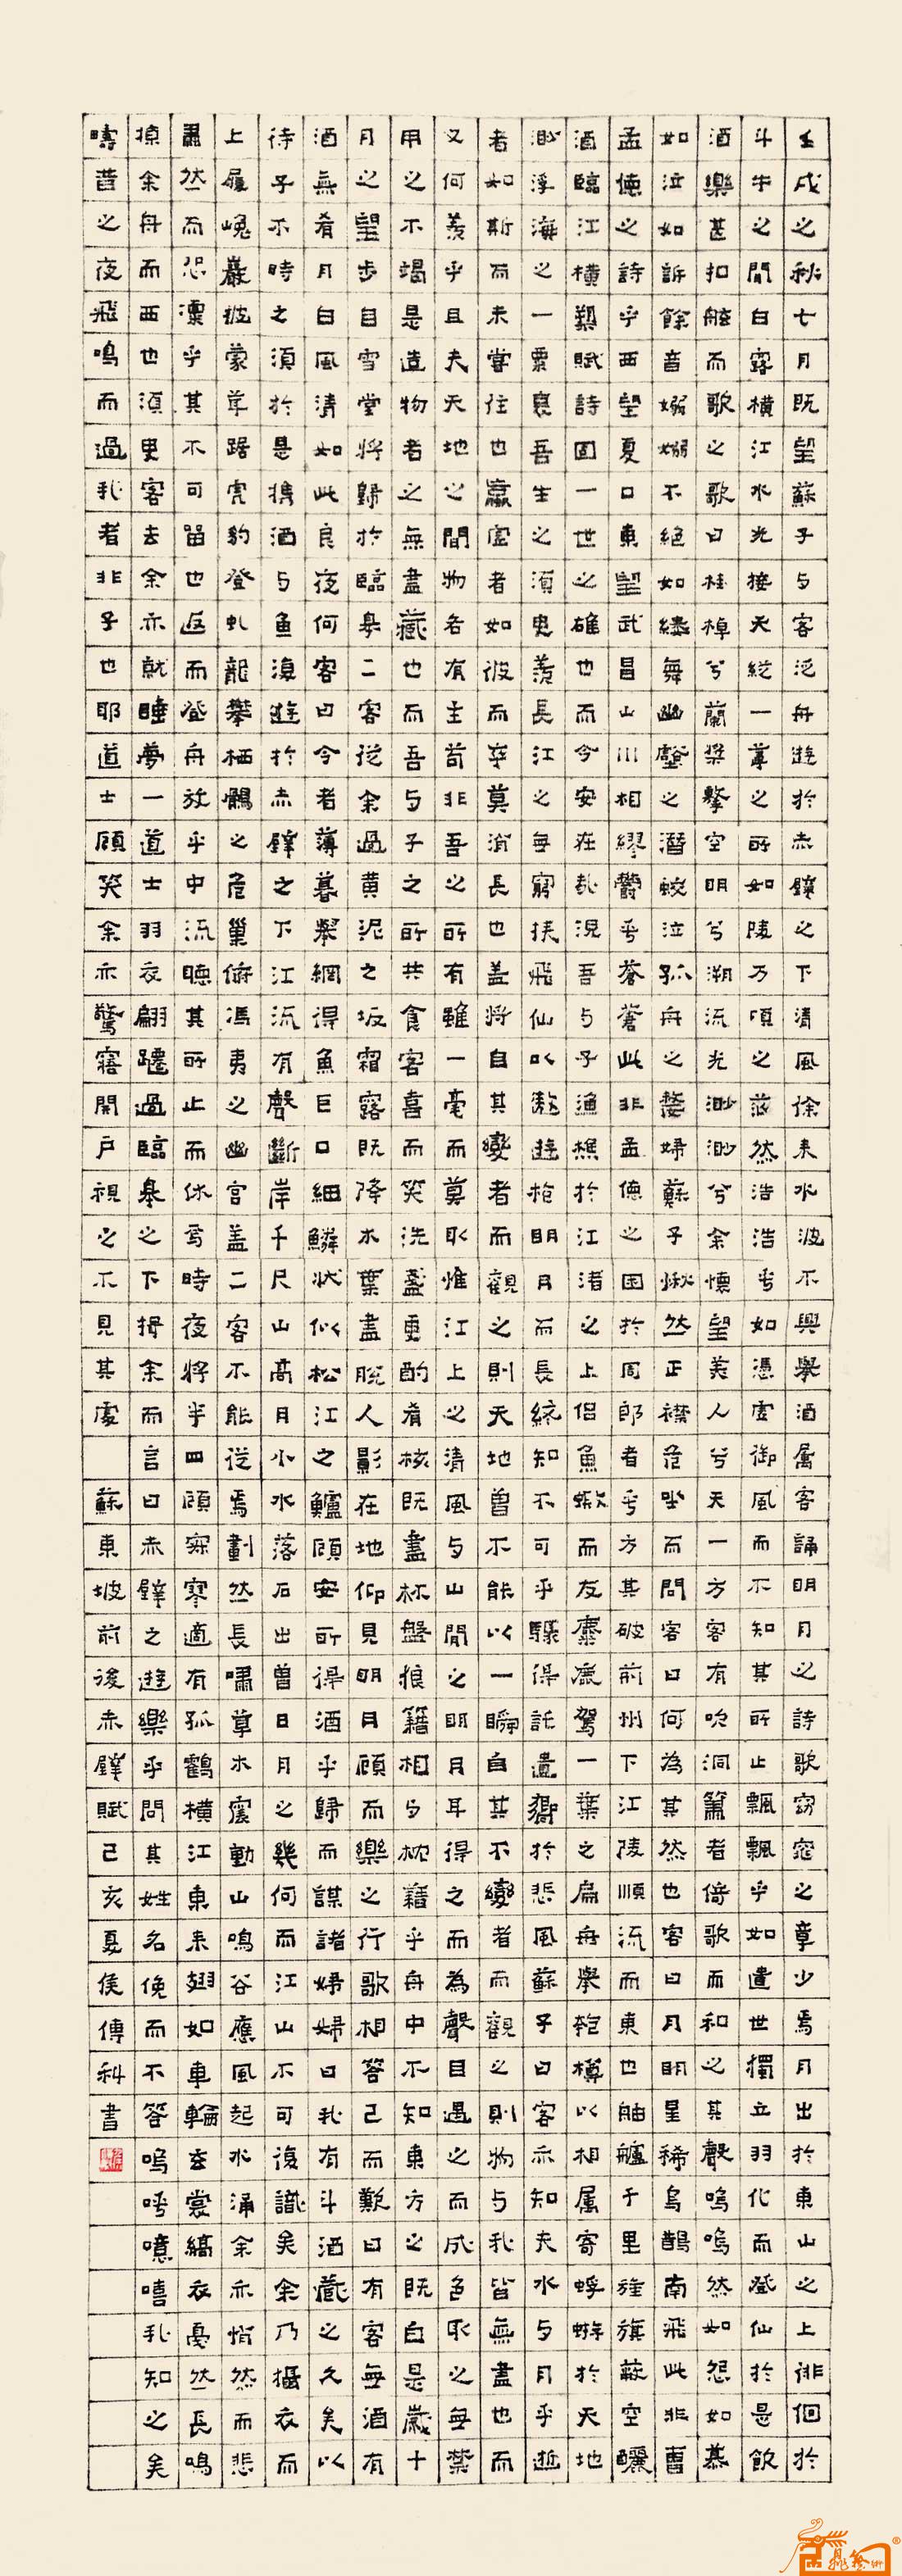 壬戌之秋七月既望蘇子与客泛舟遊於赤壁之下清風徐来水波不興舉酒属客誦明月之詩歌窈窕之章少焉月出於東山之上徘徊於
斗牛之間白露橫江水光接天縱一葦之所如陵万頃之茫然浩浩乎如憑虛御風而不知其所止飄飄乎如遺世獨立羽化而登仙於是飲
酒樂甚扣舷而歌之歌曰桂棹兮蘭槳擊空明兮溯流光渺渺兮余懷望美人兮天一方客有吹洞簫者倚歌而和之其聲嗚嗚然如怨如慕
如泣如訴餘音嫋嫋不絕如縷舞幽壑之潛蛟泣孤舟之嫠婦蘇子愀然正襟危坐而問客曰何為其然也客曰月明星稀烏鵲南飛此非曹
孟德之詩乎西望夏口東望武昌山川相繆鬱乎蒼蒼此非孟德之困於周郎者乎方其破荊州下江陵順流而東也舳艫千里旌旗蔽空釃
酒臨江橫槊賦詩固一世之雄也而今安在哉況吾与子漁樵於江渚之上侶魚蝦而友麋鹿駕一葉之扁舟舉匏樽以相属寄蜉蝣於天地
渺浮海之一粟哀吾生之須臾羨長江之無窮挾飛仙以遨遊抱明月而長終知不可乎驟得託遺響於悲風蘇子曰客亦知夫水与月乎逝
者如斯而未嘗往也盈虛者如彼而卒莫消長也盖將自其變者而觀之則天地曾不能以一瞬自其不變者而觀之則物与我皆無盡也而
又何羨乎且夫天地之間物各有主苟非吾之所有雖一毫而莫取惟江上之清風与山間之明月耳得之而為聲目遇之而成色取之無禁
用之不竭是造物者之無盡藏也而吾与子之所共食客喜而笑洗盞更酌肴核既盡杯盤狼籍相与枕藉乎舟中不知東方之既白是歲十
月之望步自雪堂將歸於臨皋二客從余過黃泥之坂霜露既降木葉盡脫人影在地仰見明月顧而樂之行歌相答已而歎曰有客無酒有
酒無肴月白風清如此良夜何客曰今者薄暮舉網得魚巨口細鱗狀似松江之鱸顧安所得酒乎歸而謀諸婦婦曰我有斗酒藏之久矣以
待子不時之須於是攜酒与魚復遊於赤壁之下江流有聲斷岸千尺山高月小水落石出曾日月之幾何而江山不可復識矣余乃攝衣而
上履巉巖披蒙茸踞虎豹登虬龍攀栖鶻之危巢俯馮夷之幽宮盖二客不能從焉劃然長嘯草木震動山鳴谷應風起水涌余亦悄然而悲
肅然而恐凜乎其不可留也返而登舟放乎中流聽其所止而休焉時夜將半四顧寂寥適有孤鶴橫江東来翅如車輪玄裳縞衣戛然長鳴
掠余舟而西也須臾客去余亦就睡夢一道士羽衣翩躚過臨皋之下揖余而言曰赤壁之遊樂乎問其姓名俛而不答嗚呼噫嘻我知之矣
疇昔之夜飛鳴而過我者非子也耶道士顧笑余亦驚寤開戶視之不見其處 蘇東坡前後赤壁賦己亥夏侯傳科書